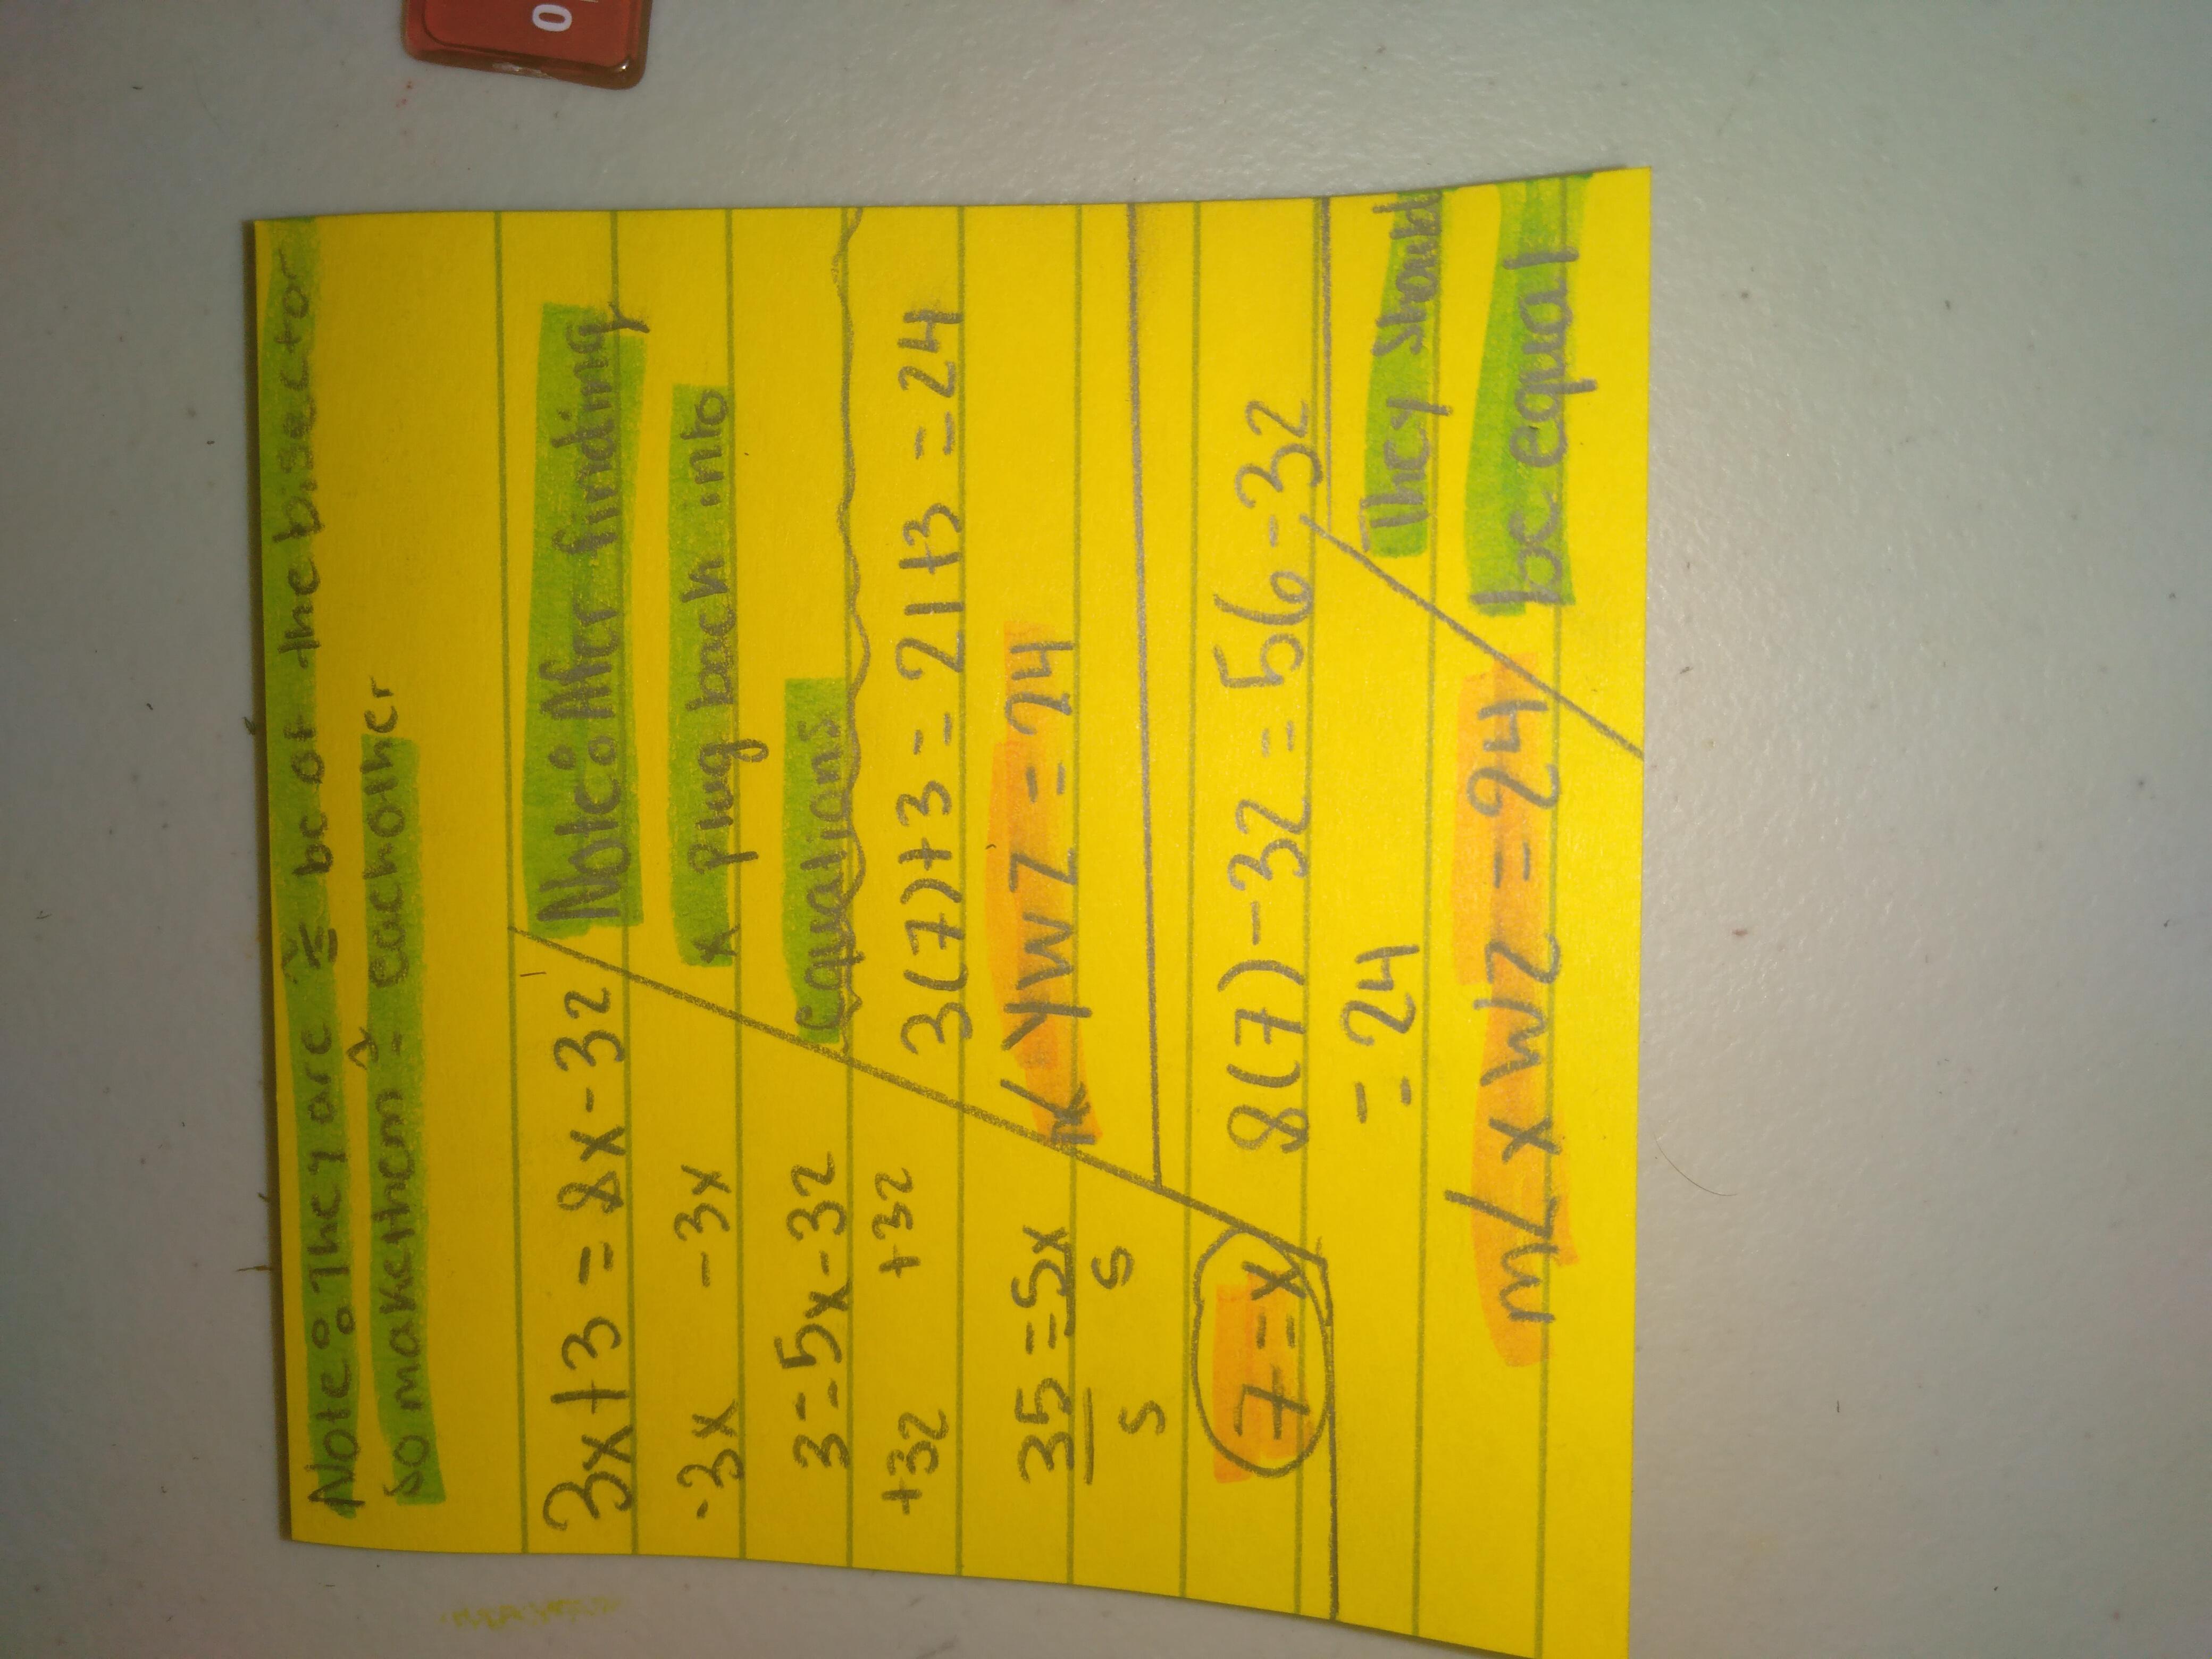 Note: They are ≅ bc of the bisector
so make them ≅ eachother
3x+3 = 8x-32
-3x -3x
3=5x-32
+32 +32
35=5x
5 5
7=x
Note: After finding
x plug back into
equations
3(7)+3 = 21+3 = 24
YWZ = 24
8(7)-32 = 56-32
= 24
m∠XWZ = 24
They should
be equal
0